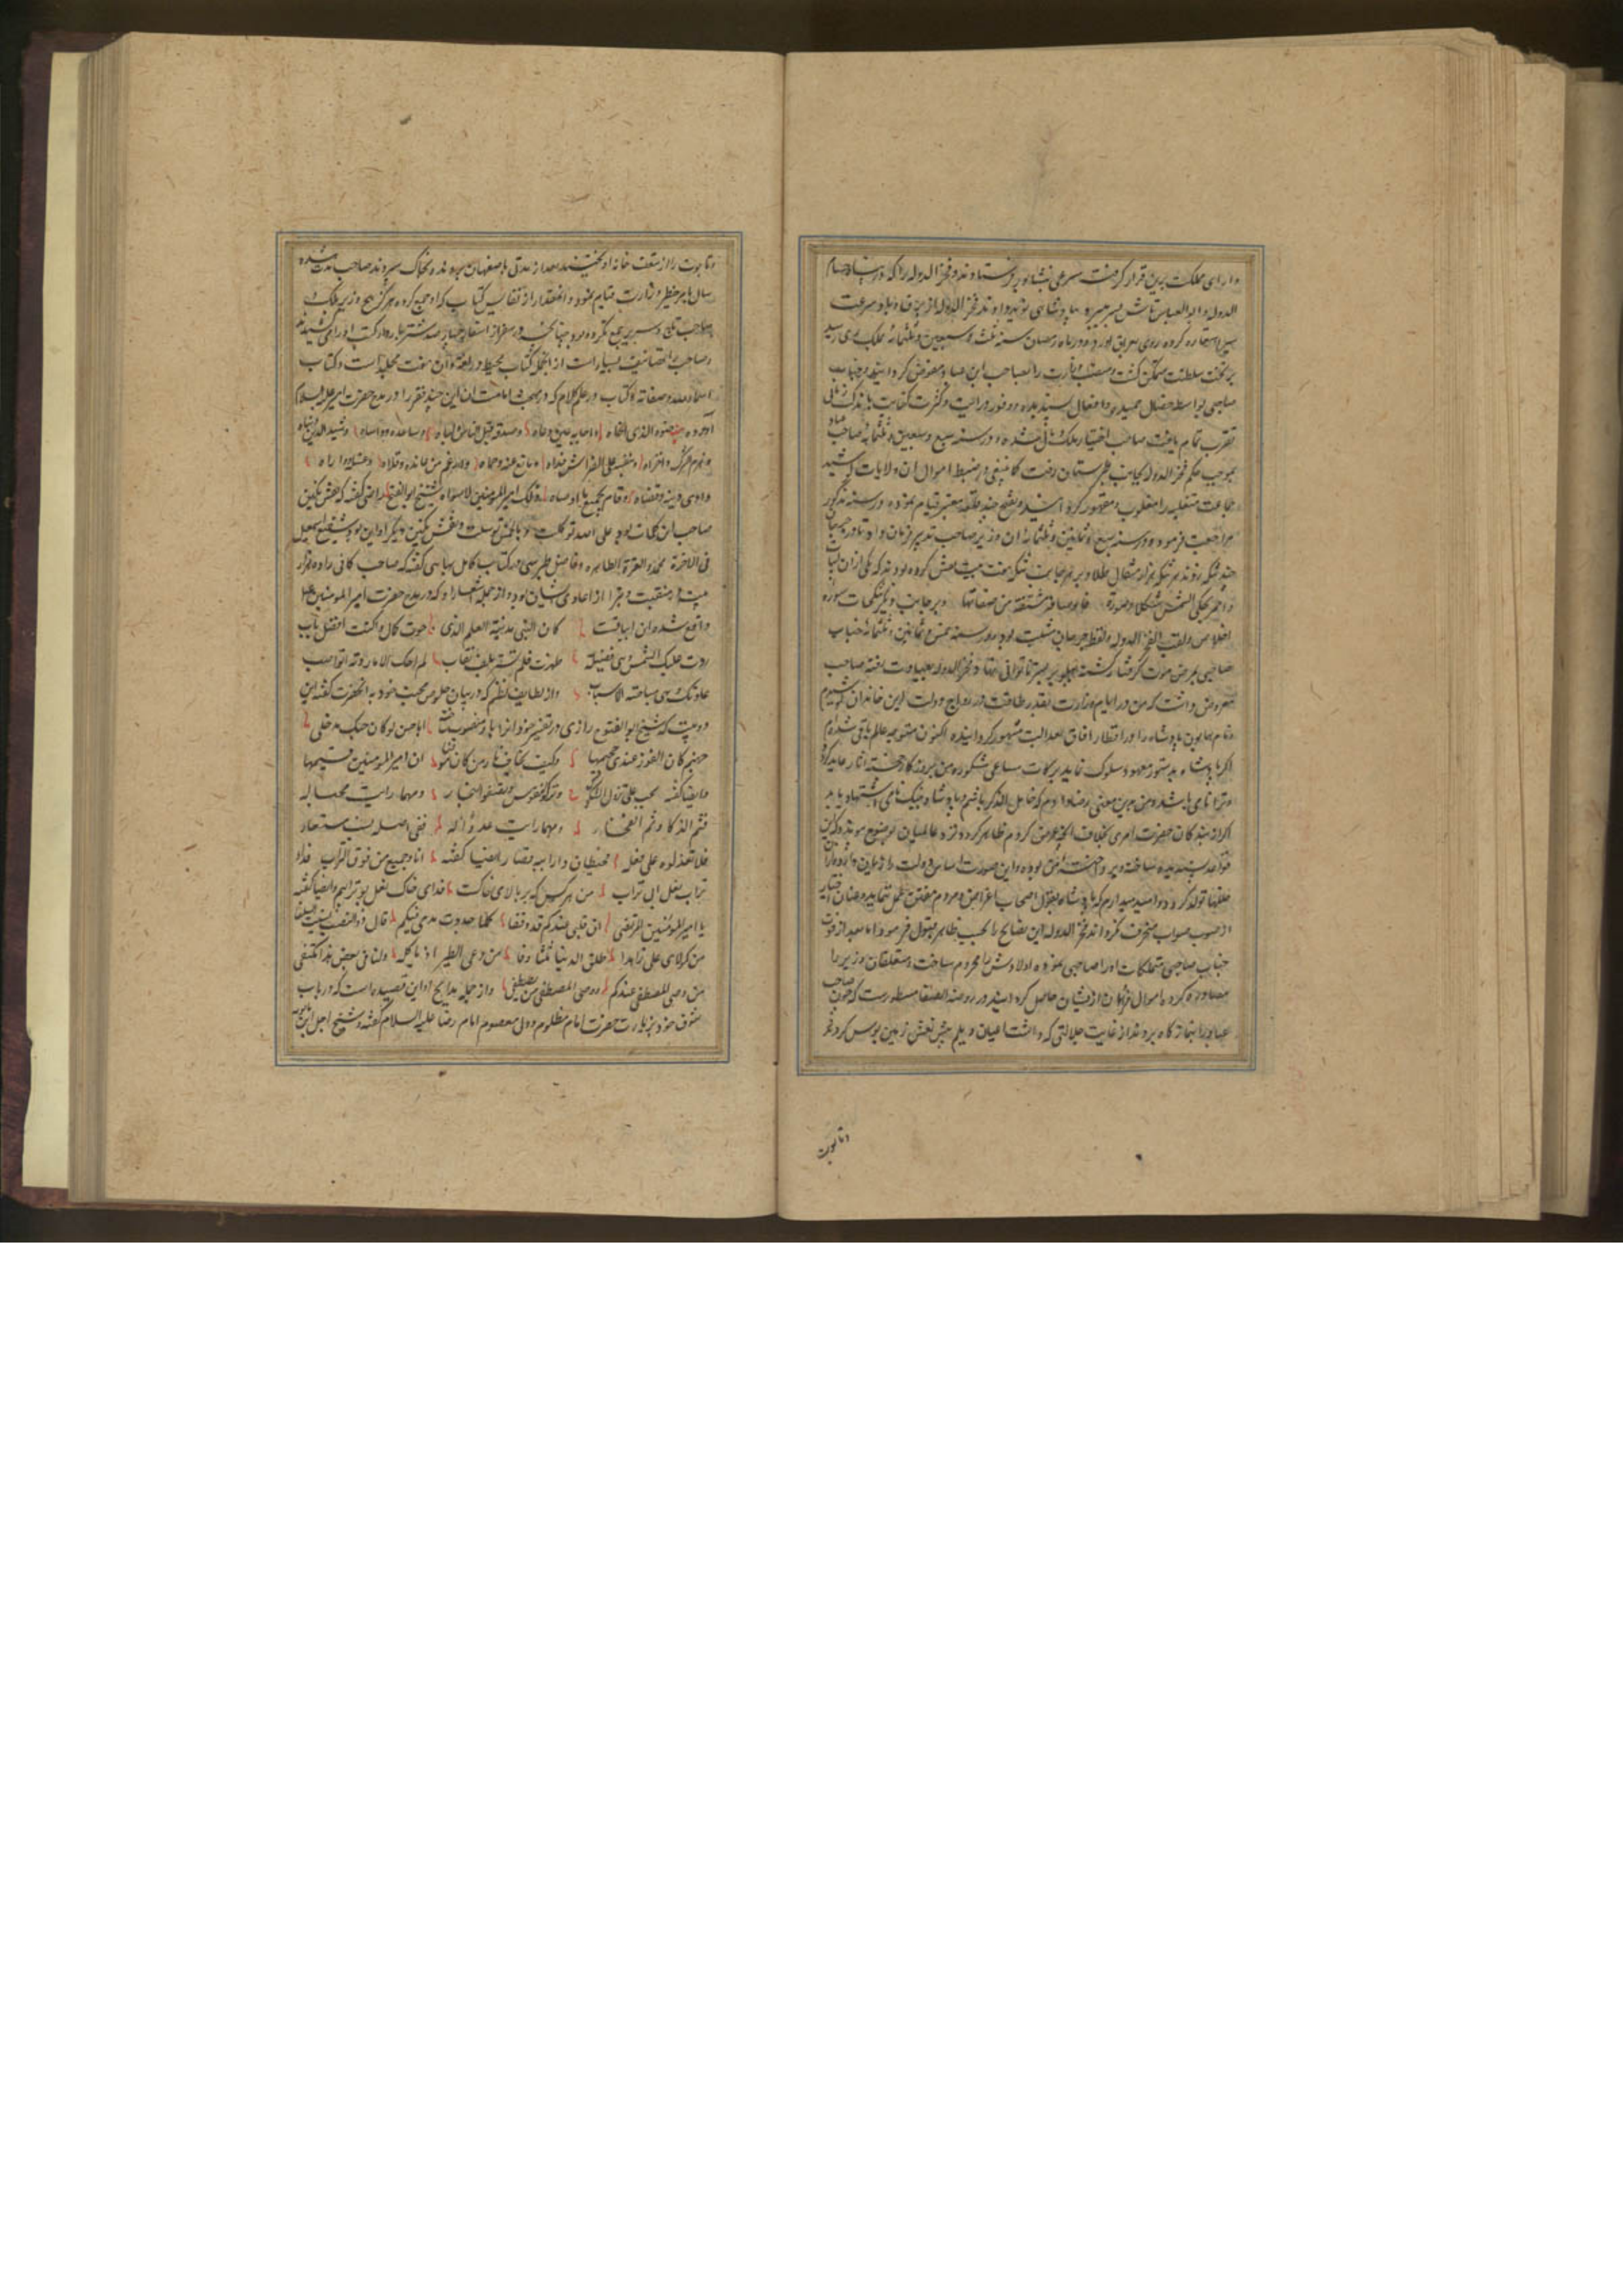 و ارای مملکت برین قرار گرفت سرعی بنیشابور فرستادند و فخر الدوله را که
الدوله و ابو العباس تاش بسر میبرد بپادشاهی نوید دادند فخر الدوله از برق و باد سرعت
سیر استعاره کرده روی براه آورد و در ماه رمضان سنه ثلث و سبعین و ثلثمایه بملک ری رسید
بر تخت سلطنت متمکن گشت و منصب وزارت را بصاحب ابن عباد مفوض گردانید و جناب
صاحبی بواسطه خصال حمیده و افعال پسندیده و وفور درایت و کثرت کفایت باندک زمانی
تقرب تمام یافت صاحب اختیار ملک و مال شد و در سنه سبع و سبعین و ثلثمایه صاحب
بموجب حکم فخر الدوله بجانب طبرستان رفت کما ینبغی در ضبط اموال ان ولایات کوشید
جماعت متغلبه را مغلوب و مقهور گردانید و بفتح چند قلعه معتبر قیام نموده در سنه مذکور
مراجعت فرمود و در سنه و ثمانین و ثلثمایه ان وزیر صاحب تدبیر فرمان داد تا در جرجان
چند سکه زدند هر سکه هزار مثقال طلا و بر هر جانب سکه هفت بیت نقش کرده بودند که یکی از ان ابیات
و احمر یحکی الشمس شکلا و صورة فاوصافه مشتقة من صفاتها و بر جانب دیگر کلمات سوره
اخلاص و لقب الفخر الدوله و لفظ جرجان مثبت بود و در سنه خمس و ثمانین و ثلثمایه جناب
صاحبی بمرض موت گرفتار گشته پهلو بر بستر ناتوانی نهاد و فخر الدوله بعیادت رفته صاحب
معروض داشت که من در ایام وزارت بقدر طاقت در رواج دولت این خاندان کوشیدم
و نام همایون پادشاه را در اقطار افاق بعدالت مشهور گردانیده اکنون متوجه عالم باقی شده‌ام
اگر پادشاه بدستور معهود سلوک نماید برکات مساعی مشکوره من بروزگار خجسته اثار عاید گردد
و ترا نامی باشد و من بدین معنی رضا دادم که خامل الذکر باشم و پادشاه به نیک نامی اشتهار یابد
اگر از بندگان حضرت امری بخلاف انچه عرض کردم ظاهر گردد نزد عالمیان بوضوح پیوندد که این
قواعد پسندیده ساخته و پرداخته من بوده و این صورت اساس دولت را زیان دارد و از ان
خللها تولد کرد و امید میدارم که پادشاه بقول اصحاب اغراض و مردم مفتن عمل ننماید و عنان اختیار
از صوب صواب منحرف نگرداند فخر الدوله این نصایح را بحسب ظاهر قبول فرمود اما بعد از فوت
جناب صاحبی متملکات او را صاحبی نموده اولادش را محروم ساخت و متعلقان وزیر را
مصادره کرد با موال فراوان از ایشان حاصل گردانید در روضه الصفا مسطورست که چون صاحب
عباد را بنمازگاه بردند از غایت جلالتی که داشت اعیان دیلم پیش نعش زمین بوس کردند
و تابوت
و تابوت را از سقف خانه اویختند بعد از مدتی باصفهان بردند و بخاک سپردند صاحب مدت هشده
سال بامر خطیر وزارت قیام نمود و انقدر از نفایس کتاب که او جمع کرده هرگز هیچ وزیر بلکه
صاحب تاج و سریر جمع نکرده بود چنانکه در سفر از اسفار چهار صد شتر بارکش کتب او را می‌کشیدند
و صاحب را تصانیف بسیار است از انجمله کتاب محیط در لغة و ان هفت مجلد است و کتاب
اسماء الله و صفاته و کتاب در علم کلام که در مبحث امامت ان این چند فقره را در مدح حضرت امیر علیه السلام
اورده صنوه الذی اخاه و اجابه حین دعاه و صدقه قبل الناس و لباه و ساعده و واساه و شید الدین و بناه
و هزم الشرک و اخزاه و بنفسه علی الفراش فداه و مانع عنه و حماه و ارغم من عانده و قلاه و غسله و واراه
و ادی دینه و قضاه و قام بجمیع ما اوصاه ذلک امیر المؤمنین لاسواه و شیخ ابو الفتوح رازی گفته که نقش نگین
صاحب این کلمات بود علی الله توکلت و بالخمس توسلت و نقش نگین دیگر او این بود شفیع اسمعیل
فی الاخرة محمد و العترة الطاهره و فاضل طبرسی در کتاب کامل بهایی گفته که صاحب کافی را ده هزار
بیت در منقبت و تبرا از اعادی ایشان بود و از جمله اشعار او که در مدح حضرت امیر المومنین علی
واقع شده ان ابیاتست کان النبی مدینة العلم الذی حوت الکمال و کنت افضل باب
ردت علیک الشمس و هی فضیلة ظهرت فلم تستر بلف نقاب لم احک الا ما روته نواصب
عادتک و هی مباحة الاسباب و از لطایف نظم که در بیان خلوص محبت خود به انحضرت گفته این
دو بیت که شیخ ابو الفتوح رازی در تفسیر خود انرا باو منسوب ساخت اباحسن لو کان حبک مدخلی
جهنم کان الفوز عندی جحیمها و کیف یخاف النار من کان مؤمنا ان امیر المؤمنین قسیمها
و ایضا گفته بحب علی تزول الشکوک و تزکو النفوس و یصفو النجار و مهما رایت محبا له
فثم الذکا و ثم الفخار و مهما رایت عدوا له ففی اصله نسب مستعار
فلا تعذلوه علی فعله فحیطان دار ابیه قصار و ایضا گفته انا و جمیع من فوق التراب فداء
تراب نعل ابی تراب من هر کس که بر بالای خاکست فدای خاک نعل بو ترابیم و ایضا گفته
یا امیر المؤمنین المرتضی ان قلبی عندکم قد وقفا کلما جددت مدحی فیکم قال ذو النصب نسیت السلفا
من کمولای علی زاهدا طلق الدنیا ثلثا و وفا من دعی للطیر ان یاکله و لنا فی بعض هذا مکتفی
من وصی المصطفی عندکم و وصی المصطفی من یصطفی و از جمله مدایح او این قصیده است که در باب
شوق خود بزیارت حضرت امام مظلوم و ولی معصوم امام رضا علیه السلام گفته و شیخ اجل ابن بابویه